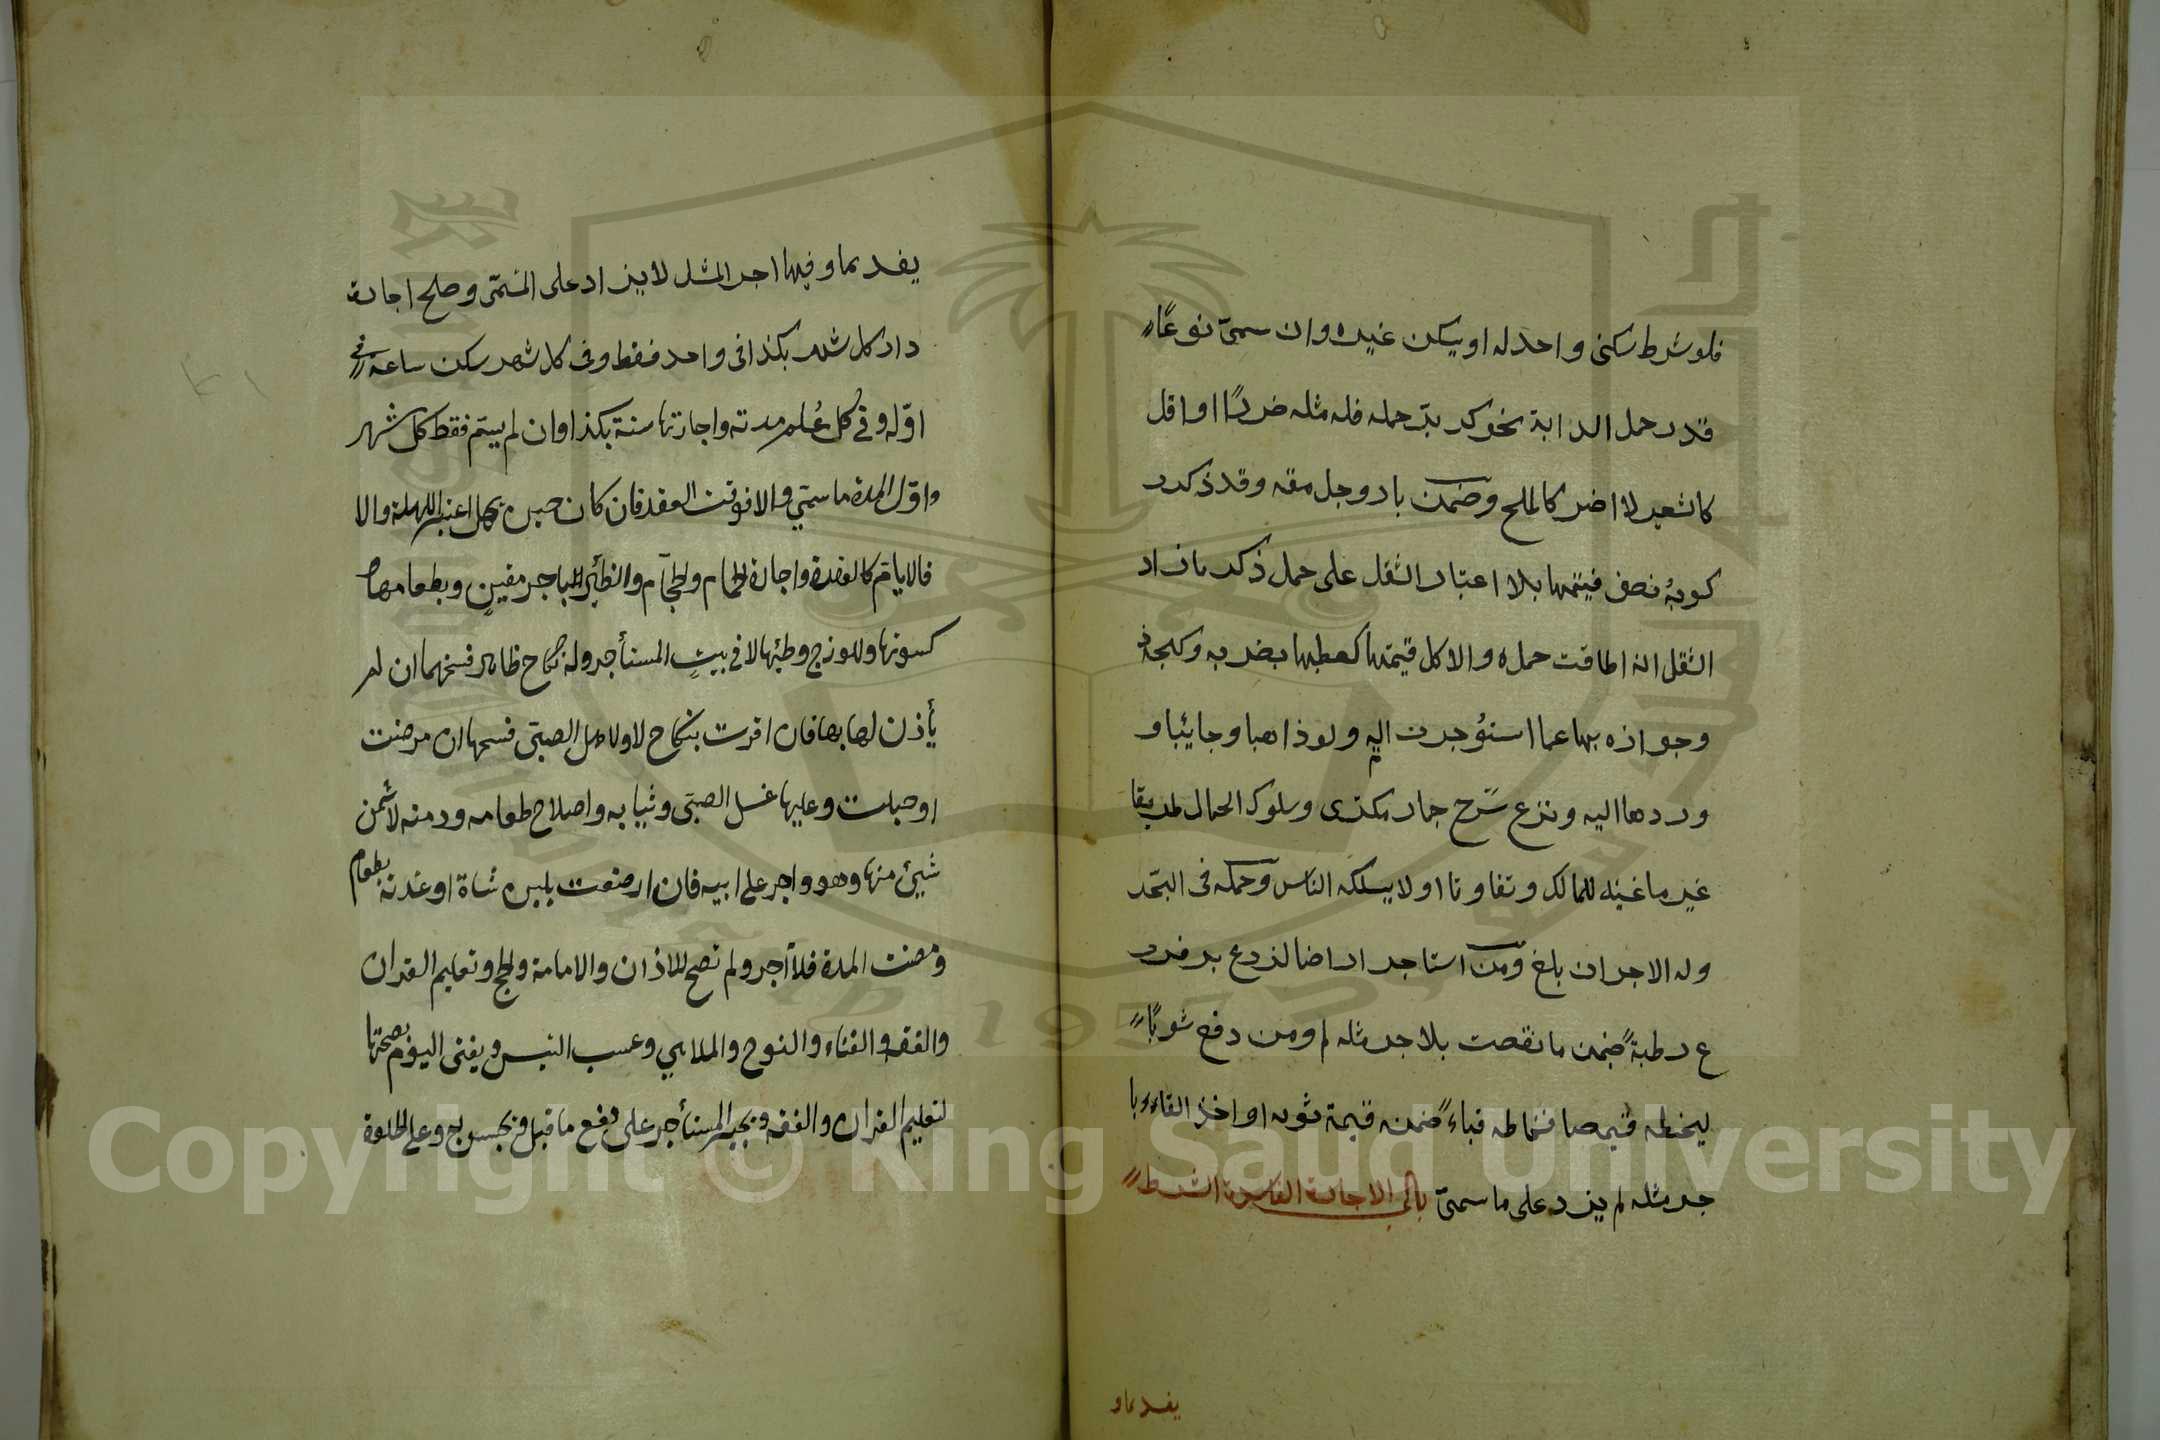 فلو شرط سكنى واحد له او يسكن غيره وان سمى نوعًا
قدر حمل الدابة نحو كر بر حمله فله مثله ضررًا او اقل
كالشعير لا اضر كالملح وضمن بارد وجل معه وقد ذكر ر
كوبه نصف قيمتها بلا اعتبار الثقل على حمل ذكر ما زاد
الثقل ان اطاقت حمله والا كل قيمتها كعطبها بضربه وكبحه
وجوازه بها عما استؤجرت اليه ولو ذاهبا وجائيا و
وردها اليه ونزع سرج حمار مكترى وسلوك الحمال طريقا
غير ما عينه المالك وتفاوتا او لا يسلكه الناس وحمله فى البحر
وله الاجر ان بلغ ومن استاجر ارضا لزرع بر فزر
ع رطبة ضمن ما نقصت بلا اجر مثله ومن دفع ثوبًا
ليخيطه قميصا فخاطه قباءً ضمنه قيمة ثوبه او اخذ القباء با
جر مثله لم يزد على ما سمى باب الاجارة الفاسدة الشرط
يفسدها و
يفسدها وفيها اجر المثل لا يزاد على المسمى وصلح اجارة
دار كل شهر بكذا فى واحد فقط وفى كل شهر سكن ساعة فى
اوله وفى كل عُلم مدته واجارتها سنة بكذا وان لم يسم قسط كل شهر
واول المدة ما سمي والا فوقت العقد فان كان حين يهل اعتبر الاهلة والا
فالايام كالعدة واجارة الحمام والحجام والظئر باجر معين وبطعامها
كسوتها وللزوج وطئها لا في بيت المستأجر وله نكاح ظاهر فسخها ان لم
يأذن لها بها فان اقرت بنكاح لا ولاهل الصبى فسخها ان مرضت
او حبلت وعليها غسل الصبى وثيابه واصلاح طعامه ودهنه لا ثمن
شيئ منها وهو واجر على ابيه فان ارضعت بلبن شاة او غدته بطعام
ومضت المدة فلا اجر ولم تصح للاذان والامامة والحج وتعليم القران
والفقه والغناء والنوح والملاهي وعسب التيس ويفتى اليوم بصحتها
لتعليم القران والفقه ويجبر المستأجر على دفع ما قبل ويحبس به وعلى الحلوة
Copyright © King Saud University